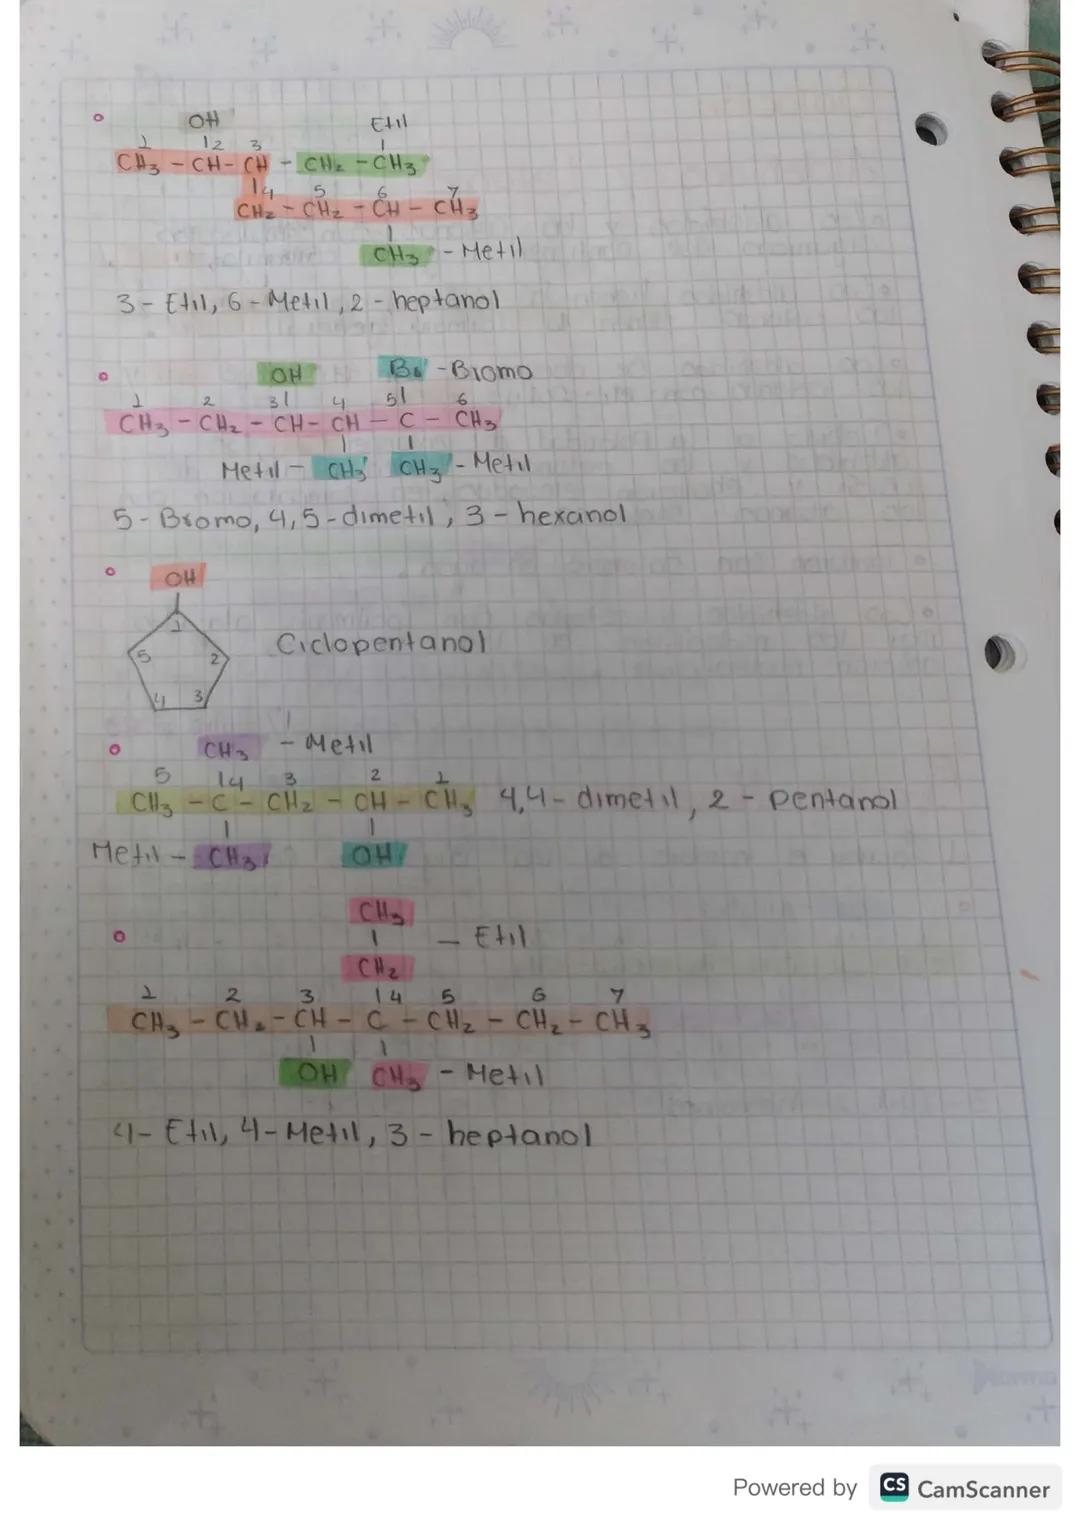 OH Etil
1 2 3
CH3 - CH - CH - CH2 - CH3
4 5 6 7
CH2 - CH2 - CH - CH3
CH3 - Metil
3 - Etil, 6 - Metil, 2 - heptanol
OH Br - Bromo
1 2 3 4 5 6
CH3 - CH2 - CH - CH - C - CH3
Metil - CH3 CH3 - Metil
5 - Bromo, 4,5 - dimetil, 3 - hexanol
OH
1
5 2 Ciclopentanol
4 3
CH3 - Metil
5 4 3 2 1
CH3 - C - CH2 - CH - CH3 4,4 - dimetil, 2 - Pentanol
Metil - CH3 OH
CH3
- Etil
CH2
1 2 3 4 5 6 7
CH3 - CH2 - CH - C - CH2 - CH2 - CH3
OH CH3 - Metil
4 - Etil, 4 - Metil, 3 - heptanol
Powered by CS CamScanner